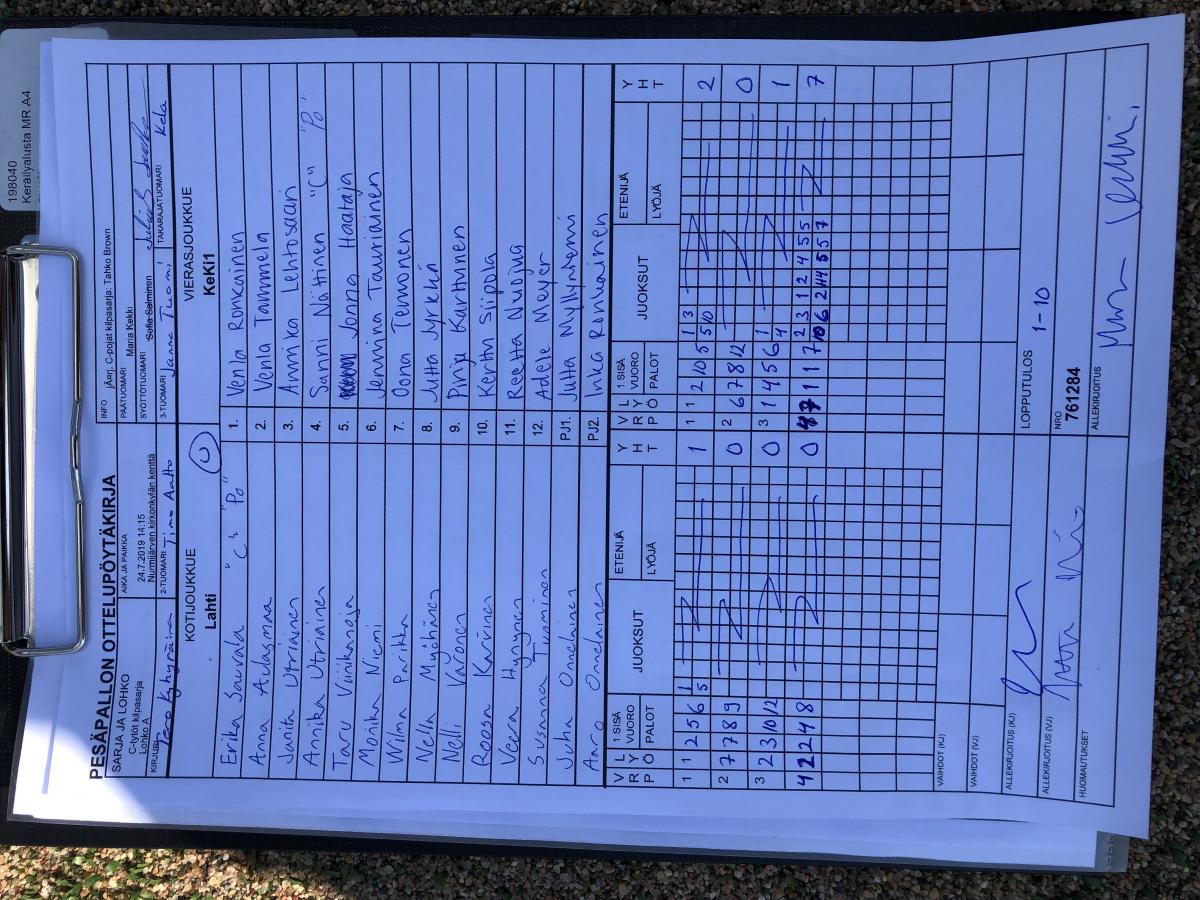 198040
Keräilyalusta MR A4
PESÄPALLON OTTELUPÖYTÄKIRJA
SARJA JA LOHKO
C-tytöt kilpasarja
Lohko A
AIKA JA PAIKKA
24.7.2019 14:15
Nurmijärven kirkonkylän kenttä
INFO
C-pojat kilpasarja: Tahko Brown
PÄÄTUOMARI
Maria Kekki
SYÖTTÖTUOMARI
Sofia Salminen
KIRJURI
2-TUOMARI Timo Aalto
3-TUOMARI Janne Tuomi
TAKARAJATUOMARI Kela
KOTIJOUKKUE
Lahti
U
VIERASJOUKKUE
KeKi1
Erika Sauvala "C" "Po" 1. Venla Ronkainen
Anna Audasmaa 2. Venla Tammela
Janita Utriainen 3. Annika Lehtosaari
Annika Utriainen 4. Sanni Nättinen "C" "Po"
Taru Viiikanoja 5. Jonna Haataja
Moniika Niemi 6. Jemmina Tauriainen
Wilma Parikka 7. Oona Temonen
Nella Myöhänen 8. Jutta Jyrkkä
Nelli Varonen 9. Pinja Karttunen
Roosa Karvinen 10. Kerttu Siippola
Veera Hynynen 11. Reetta Nuojua
Susanna Tuominen 12. Adele Meyer
Juha Onnelainen PJ1. Jutta Myllyniemi
Aaro Onnelainen PJ2. Inka Ronkainen
V R L Y P Ö 1.SISÄ VUORO PALOT JUOKSUT ETENIJÄ LYÖJÄ Y H T V R L Y P Ö 1.SISÄ VUORO PALOT JUOKSUT ETENIJÄ LYÖJÄ Y H T
1 1 2 5 6 1 5 1 1 1 2 10 5 1 3 5 10 2
2 7 7 8 9 0 2 6 7 8 12 0
3 2 3 10 12 0 3 1 4 5 6 1 4 1
4 2 2 4 8 0 1 1 7 2 3 1 2 4 5 5 7
VAIHDOT (KJ)
VAIHDOT (VJ)
ALLEKIRJOITUS (KJ)
LOPPUTULOS
1-10
ALLEKIRJOITUS (VJ)
NRO
761284
HUOMAUTUKSET
ALLEKIRJOITUS